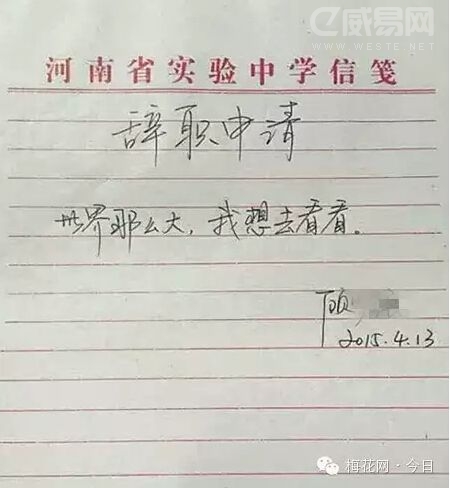 威易网
WWW.WESTE.NET
河南省实验中学信笺
辞职申请
世界那么大，我想去看看。
顾
2015.4.13
梅花网·今日